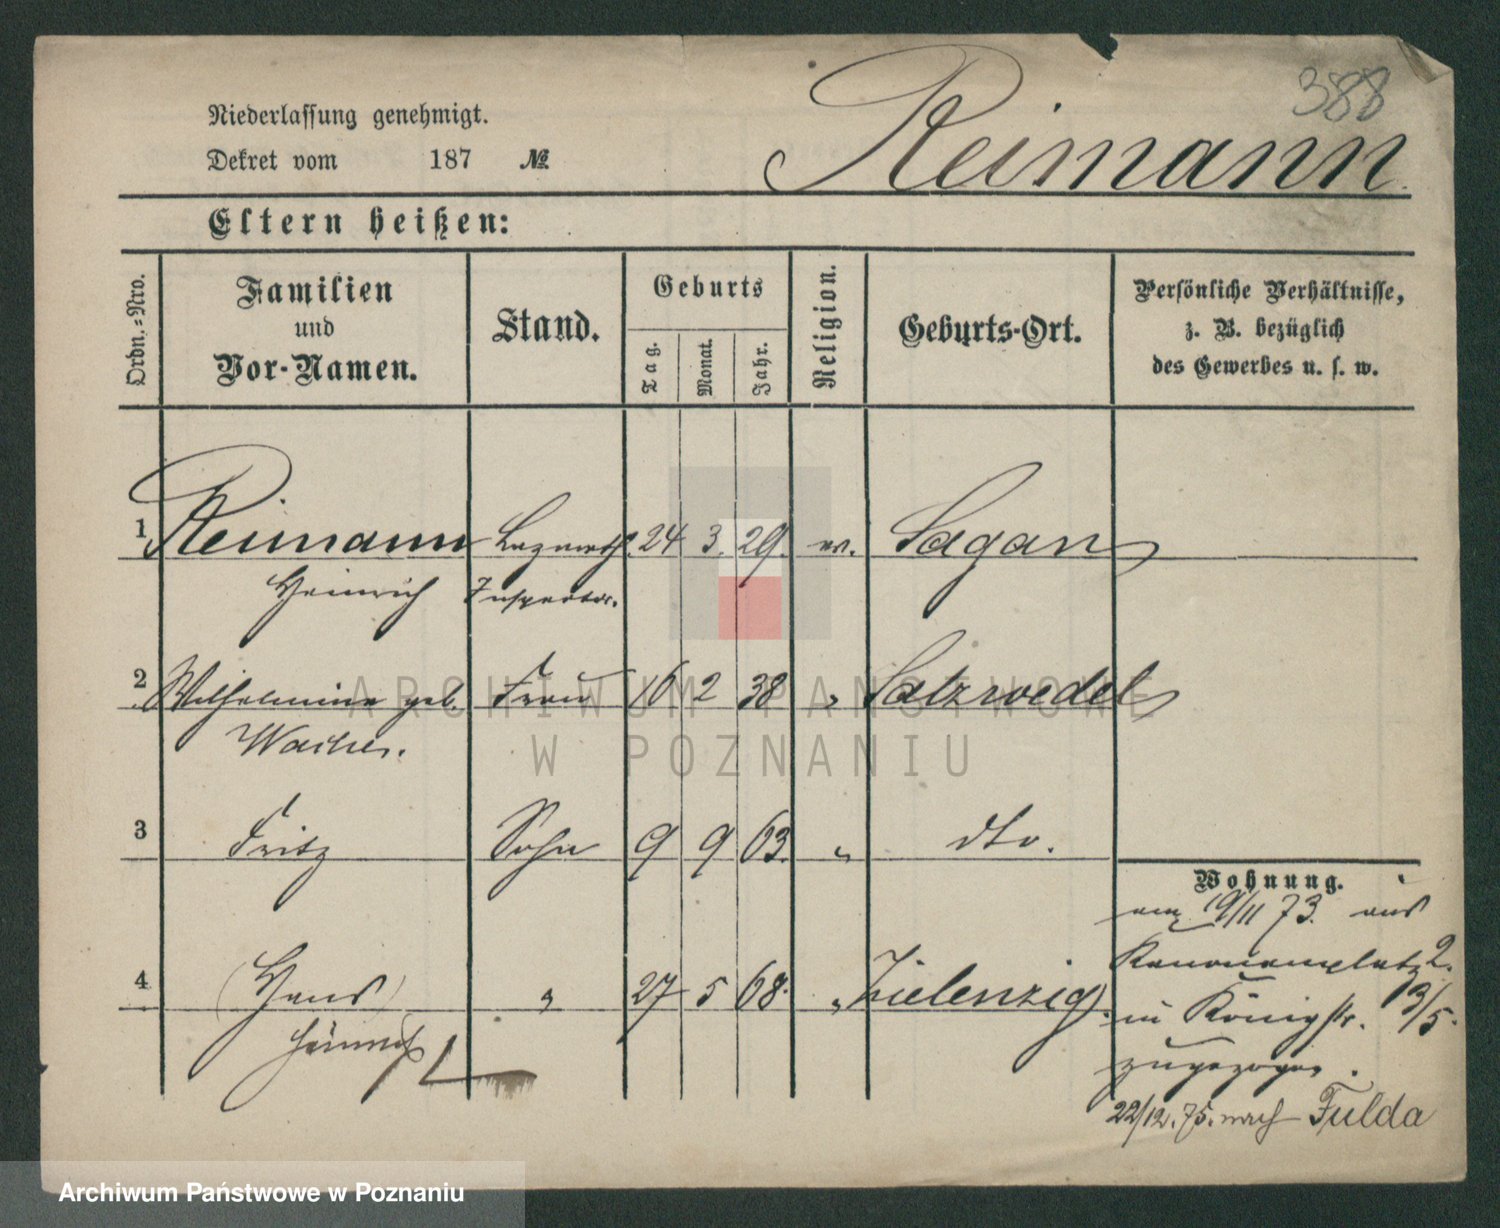 388
Niederlassung genehmigt.
Reimann.
Dekret vom 187 №
Eltern heißen:
Ordn.=Nro.
Familien
und
Vor-Namen.
Stand.
Geburts
Tag.
Monat.
Jahr.
Religion.
Geburts-Ort.
Persönliche Verhältnisse,
z. B. bezüglich
des Gewerbes u. s. w.
1 Reimann Lazareth 24 3. 29. ev. Sagan
Heinrich Inspector.
2 Wilhelmine geb. Frau 16 2 38 " Salzwedel
3 Fritz Sohn 9 9 63. " dto.
Wohnung.
19/11 73. aus
Kanonenplatz 2.
4 (Hans) " 27 5 68. " Zielenzig.
in Königstr. 13/5.
Heinrich
zugezogen.
22/12. 75. nach Fulda
ARCHIWUM PAŃSTWOWE
W POZNANIU
Archiwum Państwowe w Poznaniu